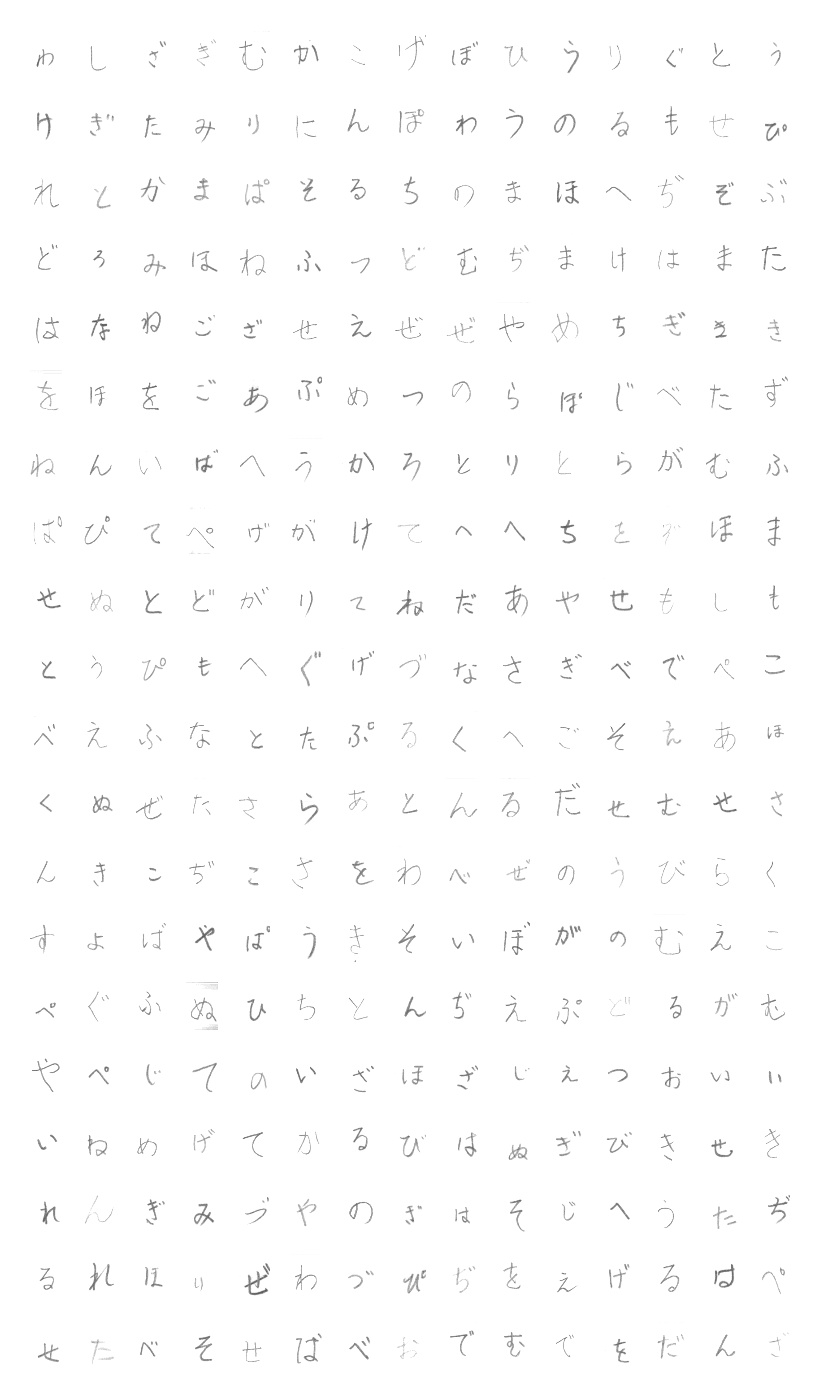 ゎしざぎむかこげぼひうりぐとぅ
けぎたみりにんぽわうのるもせぴ
れとかまぱそるちのまほへぢぞぶ
どろみほねふっどむぢまけはまた
はなねござせえぜぜやめちぎきき
をほをごあぷめつのらぽじべたず
ねんいばへうかろとりとらがむふ
ぱぴてぺげがけてへへちをぞほま
せぬとどがりてねだあやせもしも
とうぴもへぐげづなさぎべでぺこ
べえふなとたぷるくへごそえあほ
くぬぜたさらあとんるだせむせさ
んきこぢこさをわべぜのうびらく
すよばやぱうきそいぼがのむえこ
ぺぐふぬひちとんぢえぷどるがむ
やぺじてのいざほざじぇつおいぃ
いねめげてかるびはぬぎびきせき
れんぎみづやのぎはそじへうたぢ
るれほりぜわづぴぢをえげるはぺ
せたべそせばべおでむでをだんざ